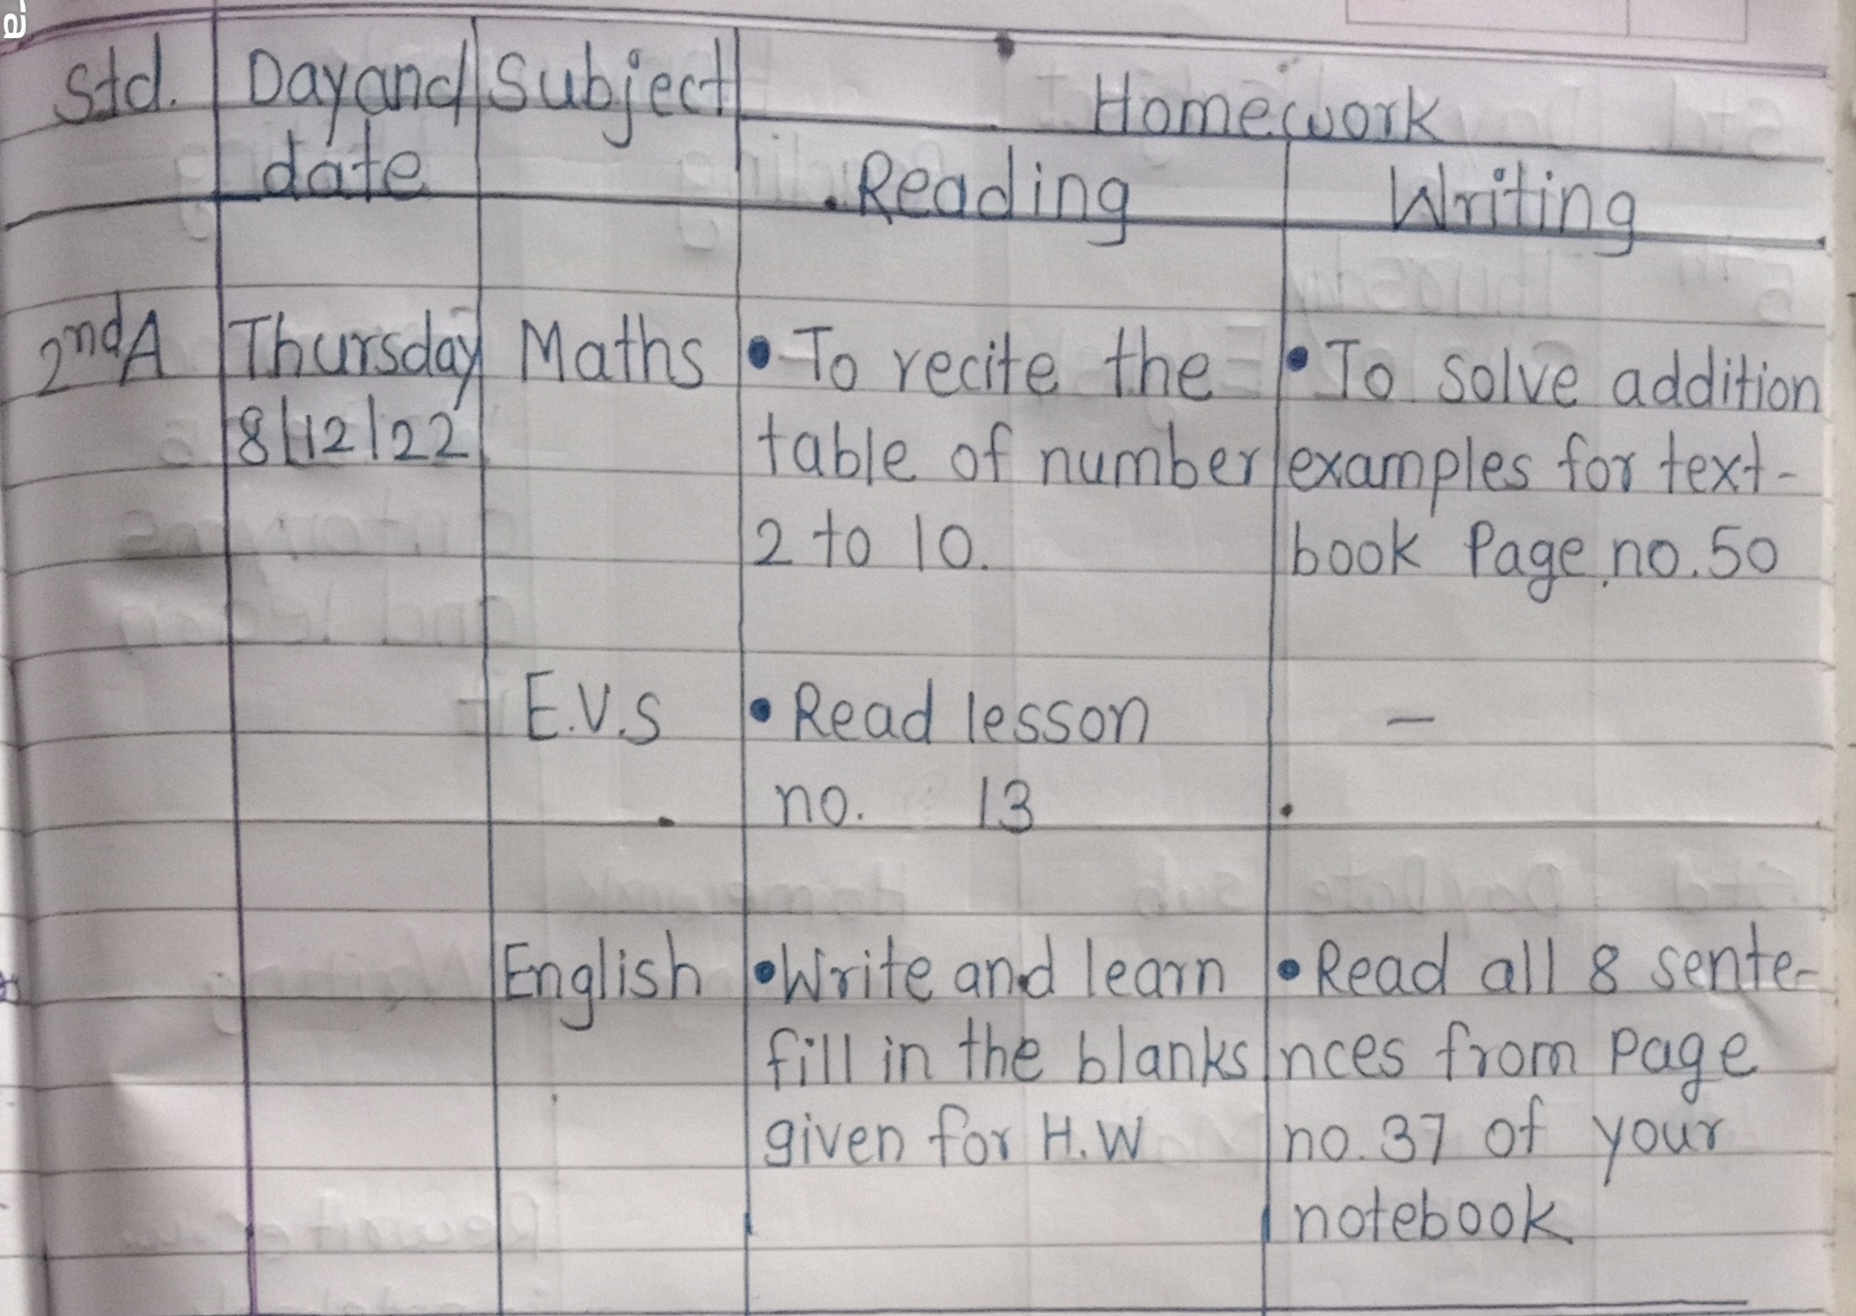 Std. Day and Subject Homework
date Reading Writing
2nd A Thursday Maths • To recite the • To solve addition
8/12/22 table of number examples for text-
2 to 10. book Page no. 50
E.V.S • Read lesson –
no. 13
English • Write and learn • Read all 8 sente-
fill in the blanks nces from page
given for H.W no. 37 of your
notebook